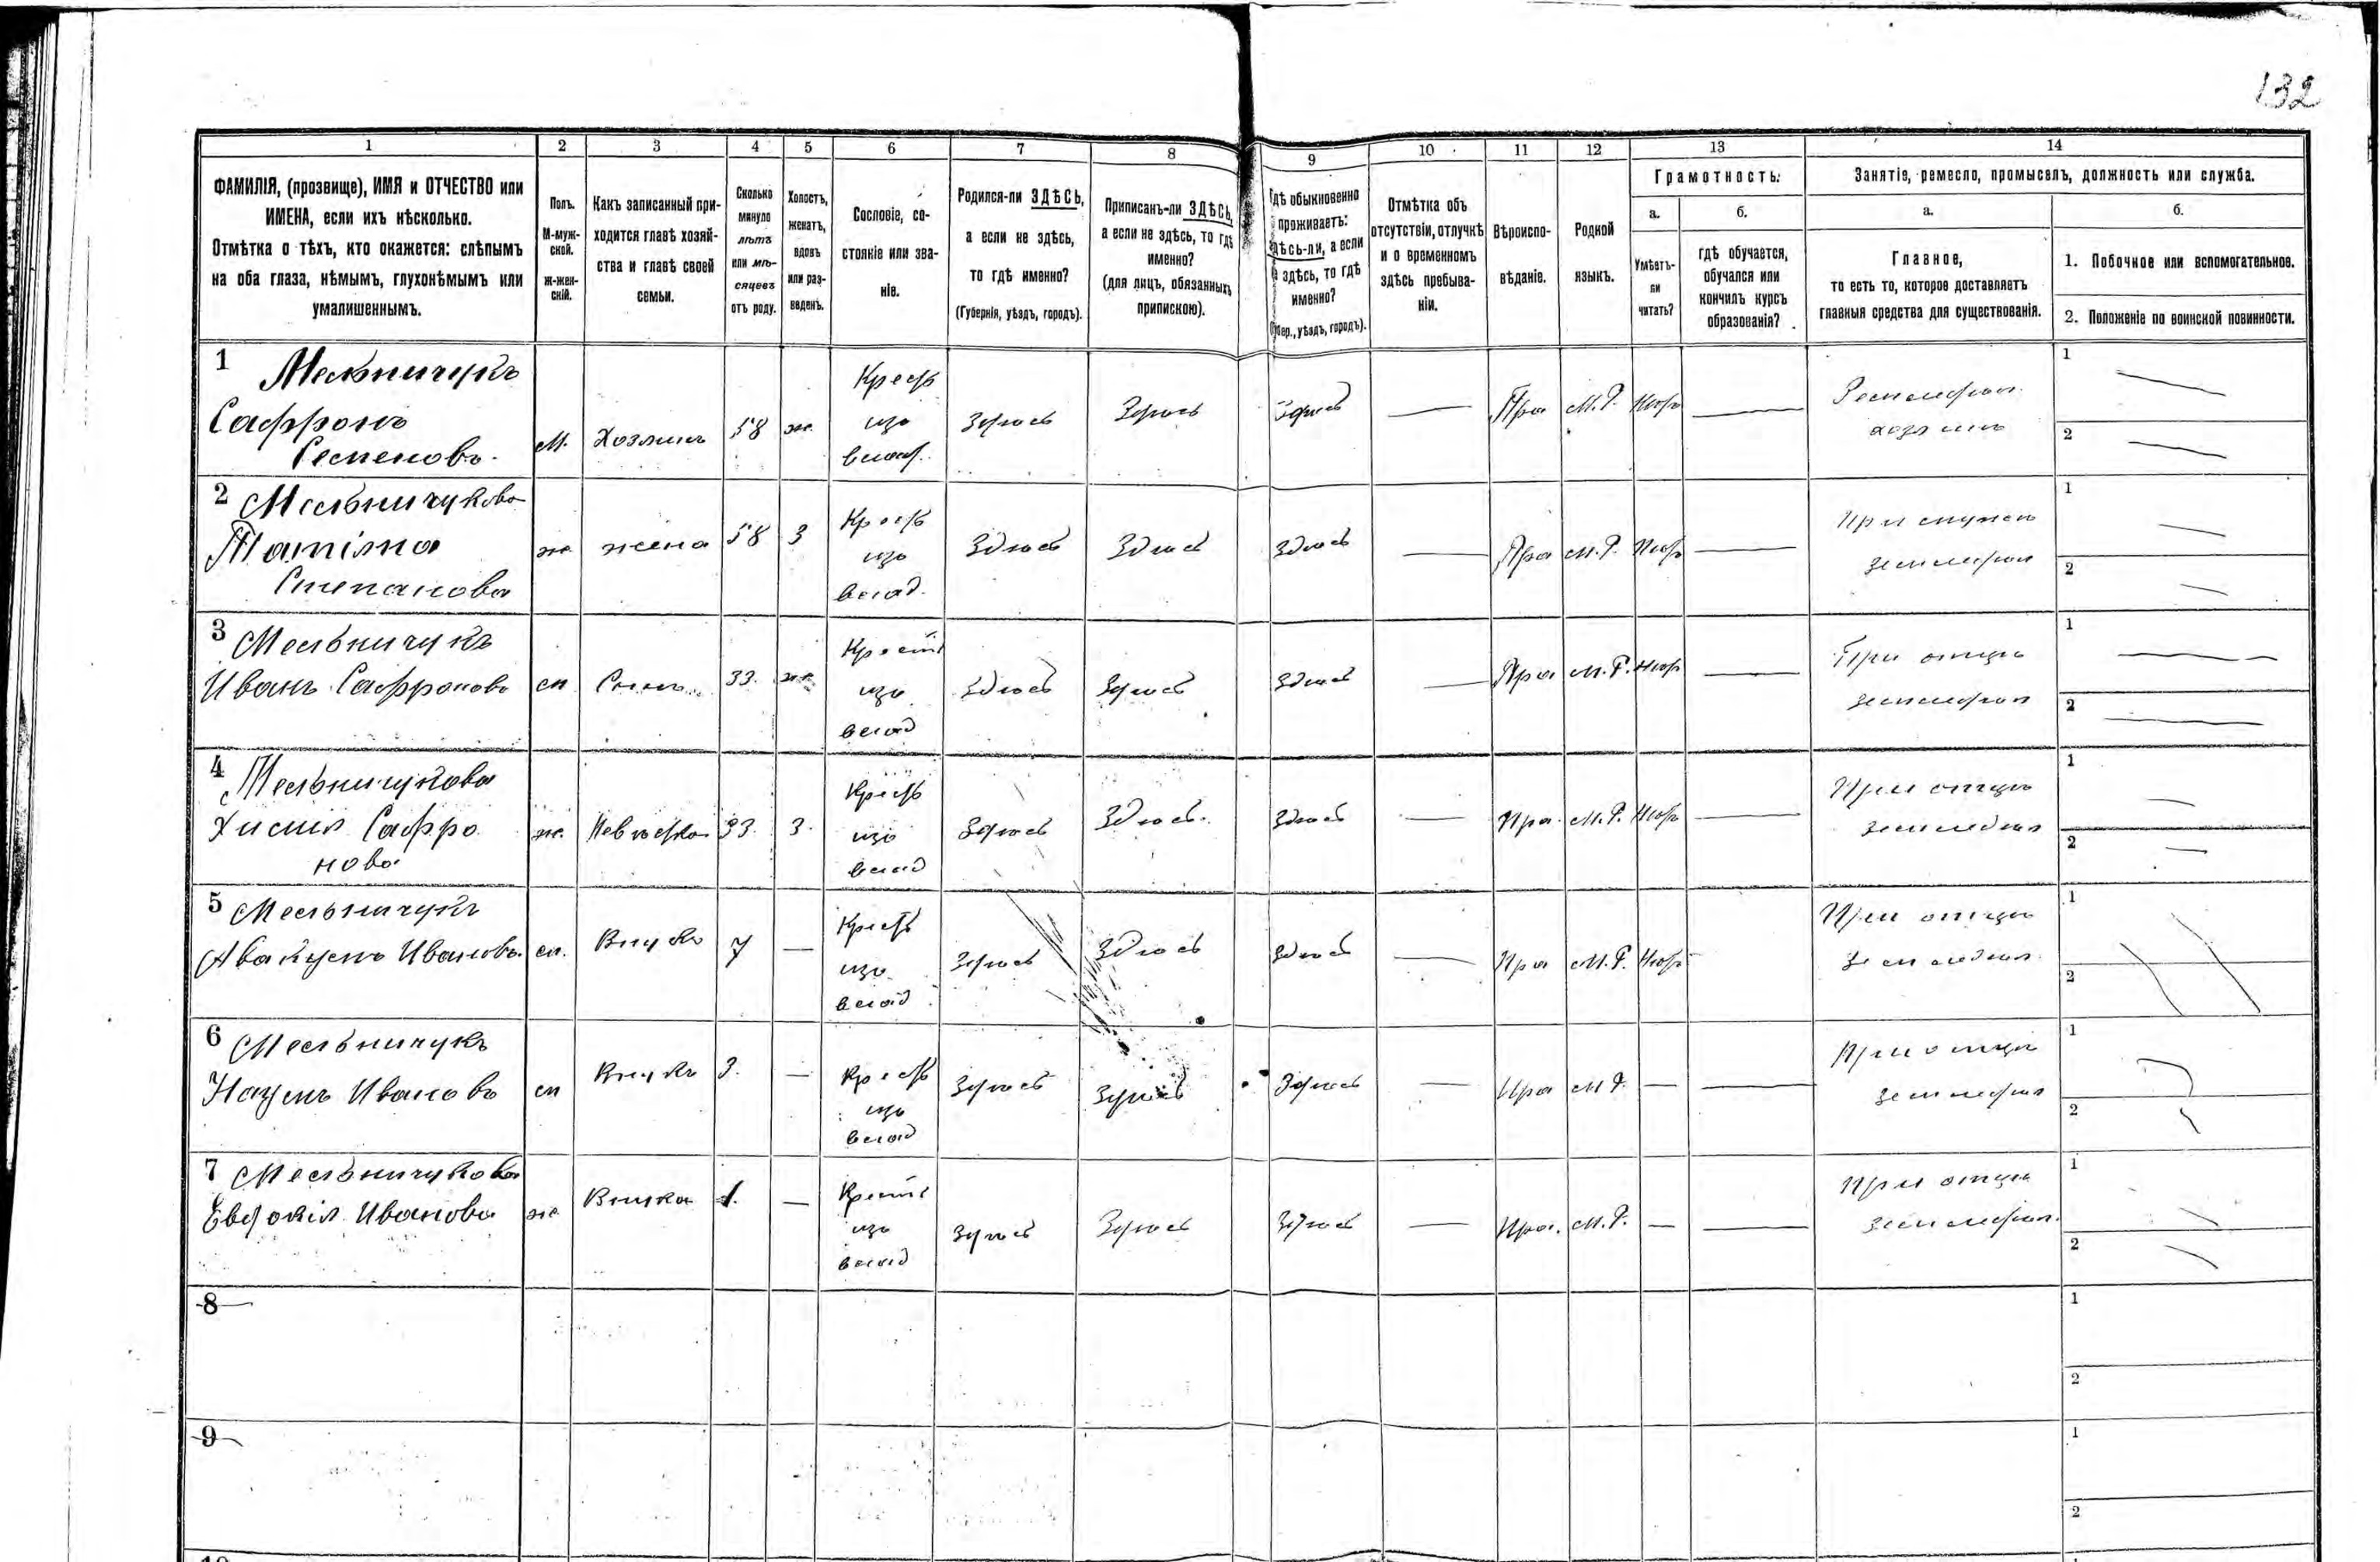 132
1 2 3 4 5 6 7 8 9 10 11 12 13 14
ФАМИЛІЯ, (прозвище), ИМЯ и ОТЧЕСТВО или
ИМЕНА, если ихъ нѣсколько.
Отмѣтка о тѣхъ, кто окажется: слѣпымъ
на оба глаза, нѣмымъ, глухонѣмымъ или
умалишеннымъ.
Полъ.
М-муж-
ской.
Ж-жен-
скій.
Какъ записанный при-
ходится главѣ хозяй-
ства и главѣ своей
семьи.
Сколько
минуло
лѣтъ
или мѣ-
сяцевъ
отъ роду.
Холостъ,
женатъ,
вдовъ
или раз-
веденъ.
Сословіе, со-
стояніе или зва-
ніе.
Родился-ли ЗДѢСЬ,
а если не здѣсь,
то гдѣ именно?
(Губернія, уѣздъ, городъ).
Приписанъ-ли ЗДѢСЬ,
а если не здѣсь, то гдѣ
именно?
(для лицъ, обязанныхъ
припискою).
Гдѣ обыкновенно
проживаетъ:
здѣсь-ли, а если
не здѣсь, то гдѣ
именно?
(Губер., уѣздъ, городъ).
Отмѣтка объ
отсутствіи, отлучкѣ
и о временномъ
здѣсь пребыва-
ніи.
Вѣроиспо-
вѣданіе.
Родной
языкъ.
Грамотность.
а.
Умѣетъ-
ли
читать?
б.
гдѣ обучается,
обучался или
кончилъ курсъ
образованія?
Занятіе, ремесло, промыселъ, должность или служба.
а.
Главное,
то есть то, которое доставляетъ
главныя средства для существованія.
б.
1. Побочное или вспомогательное.
2. Положеніе по воинской повинности.
1 Мельничукъ
Сафронъ
Семеновъ.
М. Хозяинъ 58 ж. Крест. изъ влад. Здѣсь Здѣсь Здѣсь — Пра М.Р. Нѣтъ — Землед. хозяинъ 1 — 2 —
2 Мельничукова
Татіяна
Степанова
ж. жена 58 З Крест. изъ влад. Здѣсь Здѣсь Здѣсь — Пра М.Р. Нѣтъ — При мужѣ землед. 1 — 2 —
3 Мельничукъ
Иванъ Сафроновъ
м Сынъ 33. ж. Крест изъ влад Здѣсь Здѣсь Здѣсь — Пра М.Р. Нѣтъ — При отцѣ землед. 1 — 2 —
4 Мельничукова
Сафро
нова
ж. Невѣстка 33. З. Крест изъ влад Здѣсь Здѣсь. Здѣсь — Пра. М.Р. Нѣтъ — При отцѣ землед. 1 — 2 —
5 Мельничукъ
Авакумъ Ивановъ
м. Внукъ 7 — Крест изъ влад Здѣсь Здѣсь Здѣсь — Пра М.Р. Нѣтъ — При отцѣ землед. 1 2
6 Мельничукъ
Наумъ Ивановъ
м Внукъ 3. — Крест изъ влад Здѣсь Здѣсь Здѣсь — Пра М.Р. — — При отцѣ землед. 1 2
7 Мельничукова
Евдокія Иванова
ж. Внука 1. — Крест изъ влад Здѣсь Здѣсь Здѣсь — Пра. М.Р. — — При отцѣ землед. 1 — 2 —
8 1
2
9 1
2